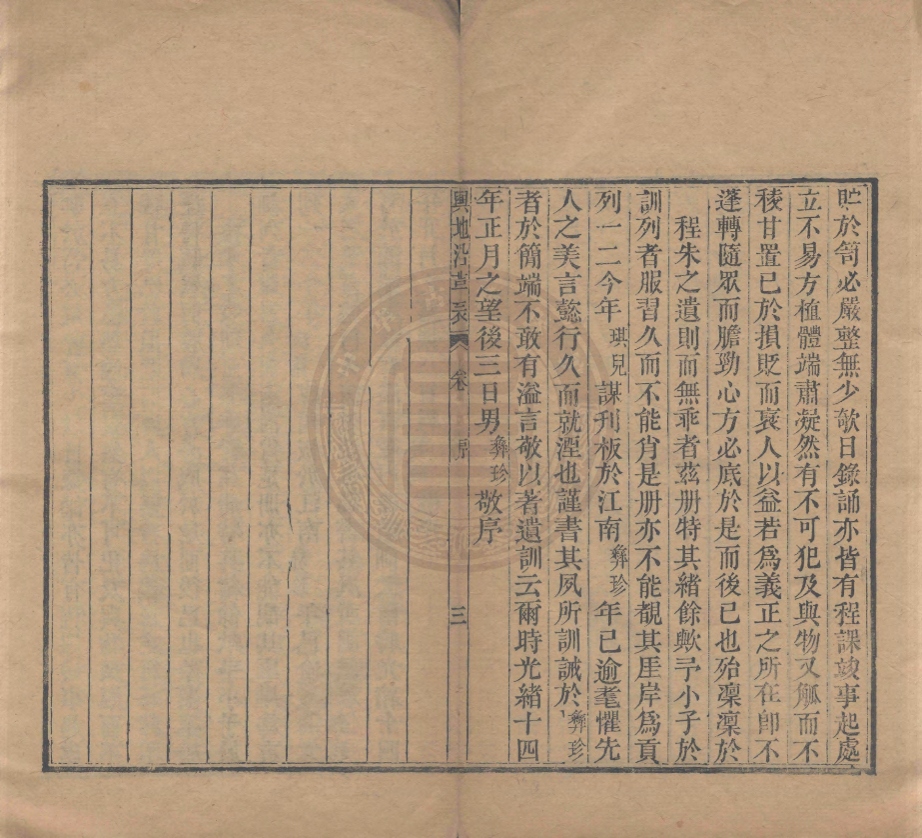 貯於笥必嚴整無少欹日錄誦亦皆有程課竣事起處
立不易方植體端肅凝然有不可犯及與物又觚而不
稜甘置已於損貶而裒人以益若爲義正之所在卽不
蓬轉隨眾而膽勁心方必底於是而後已也殆凜凜於
程朱之遺則而無乖者茲册特其緒餘歟予小子於
訓列者服習久而不能肖是册亦不能覩其厓岸爲貢
列一二今年琪兒謀刋板於江南彜珍年已逾耄懼先
人之美言懿行久而就湮也謹書其夙所訓誡於彜珍
者於簡端不敢有溢言敬以著遺訓云爾時光緒十四
年正月之望後三日男彜珍敬序
輿地沿革表 卷 序 三